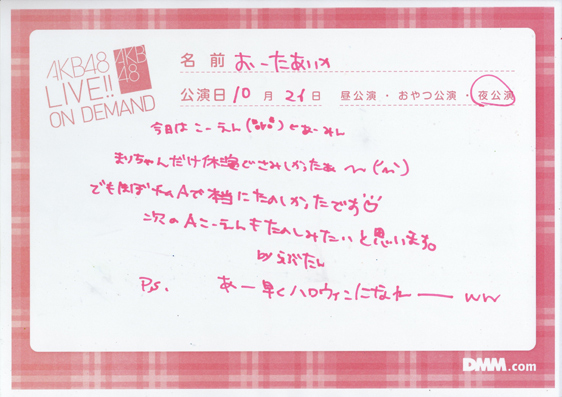 AKB48
LIVE!!
ON DEMAND
AKB
48
名前 おーたあいか
公演日 10月21日 昼公演・おやつ公演・夜公演
今日はこーえん
まりちゃんだけ休演でさみしかったぁ〜
でもほぼteamAで本当にたのしかったです
次のAこーえんもたのしみたいと思います。
by らぶたん
P.S. あー早くハロウィンになれーーwww
DMM.com